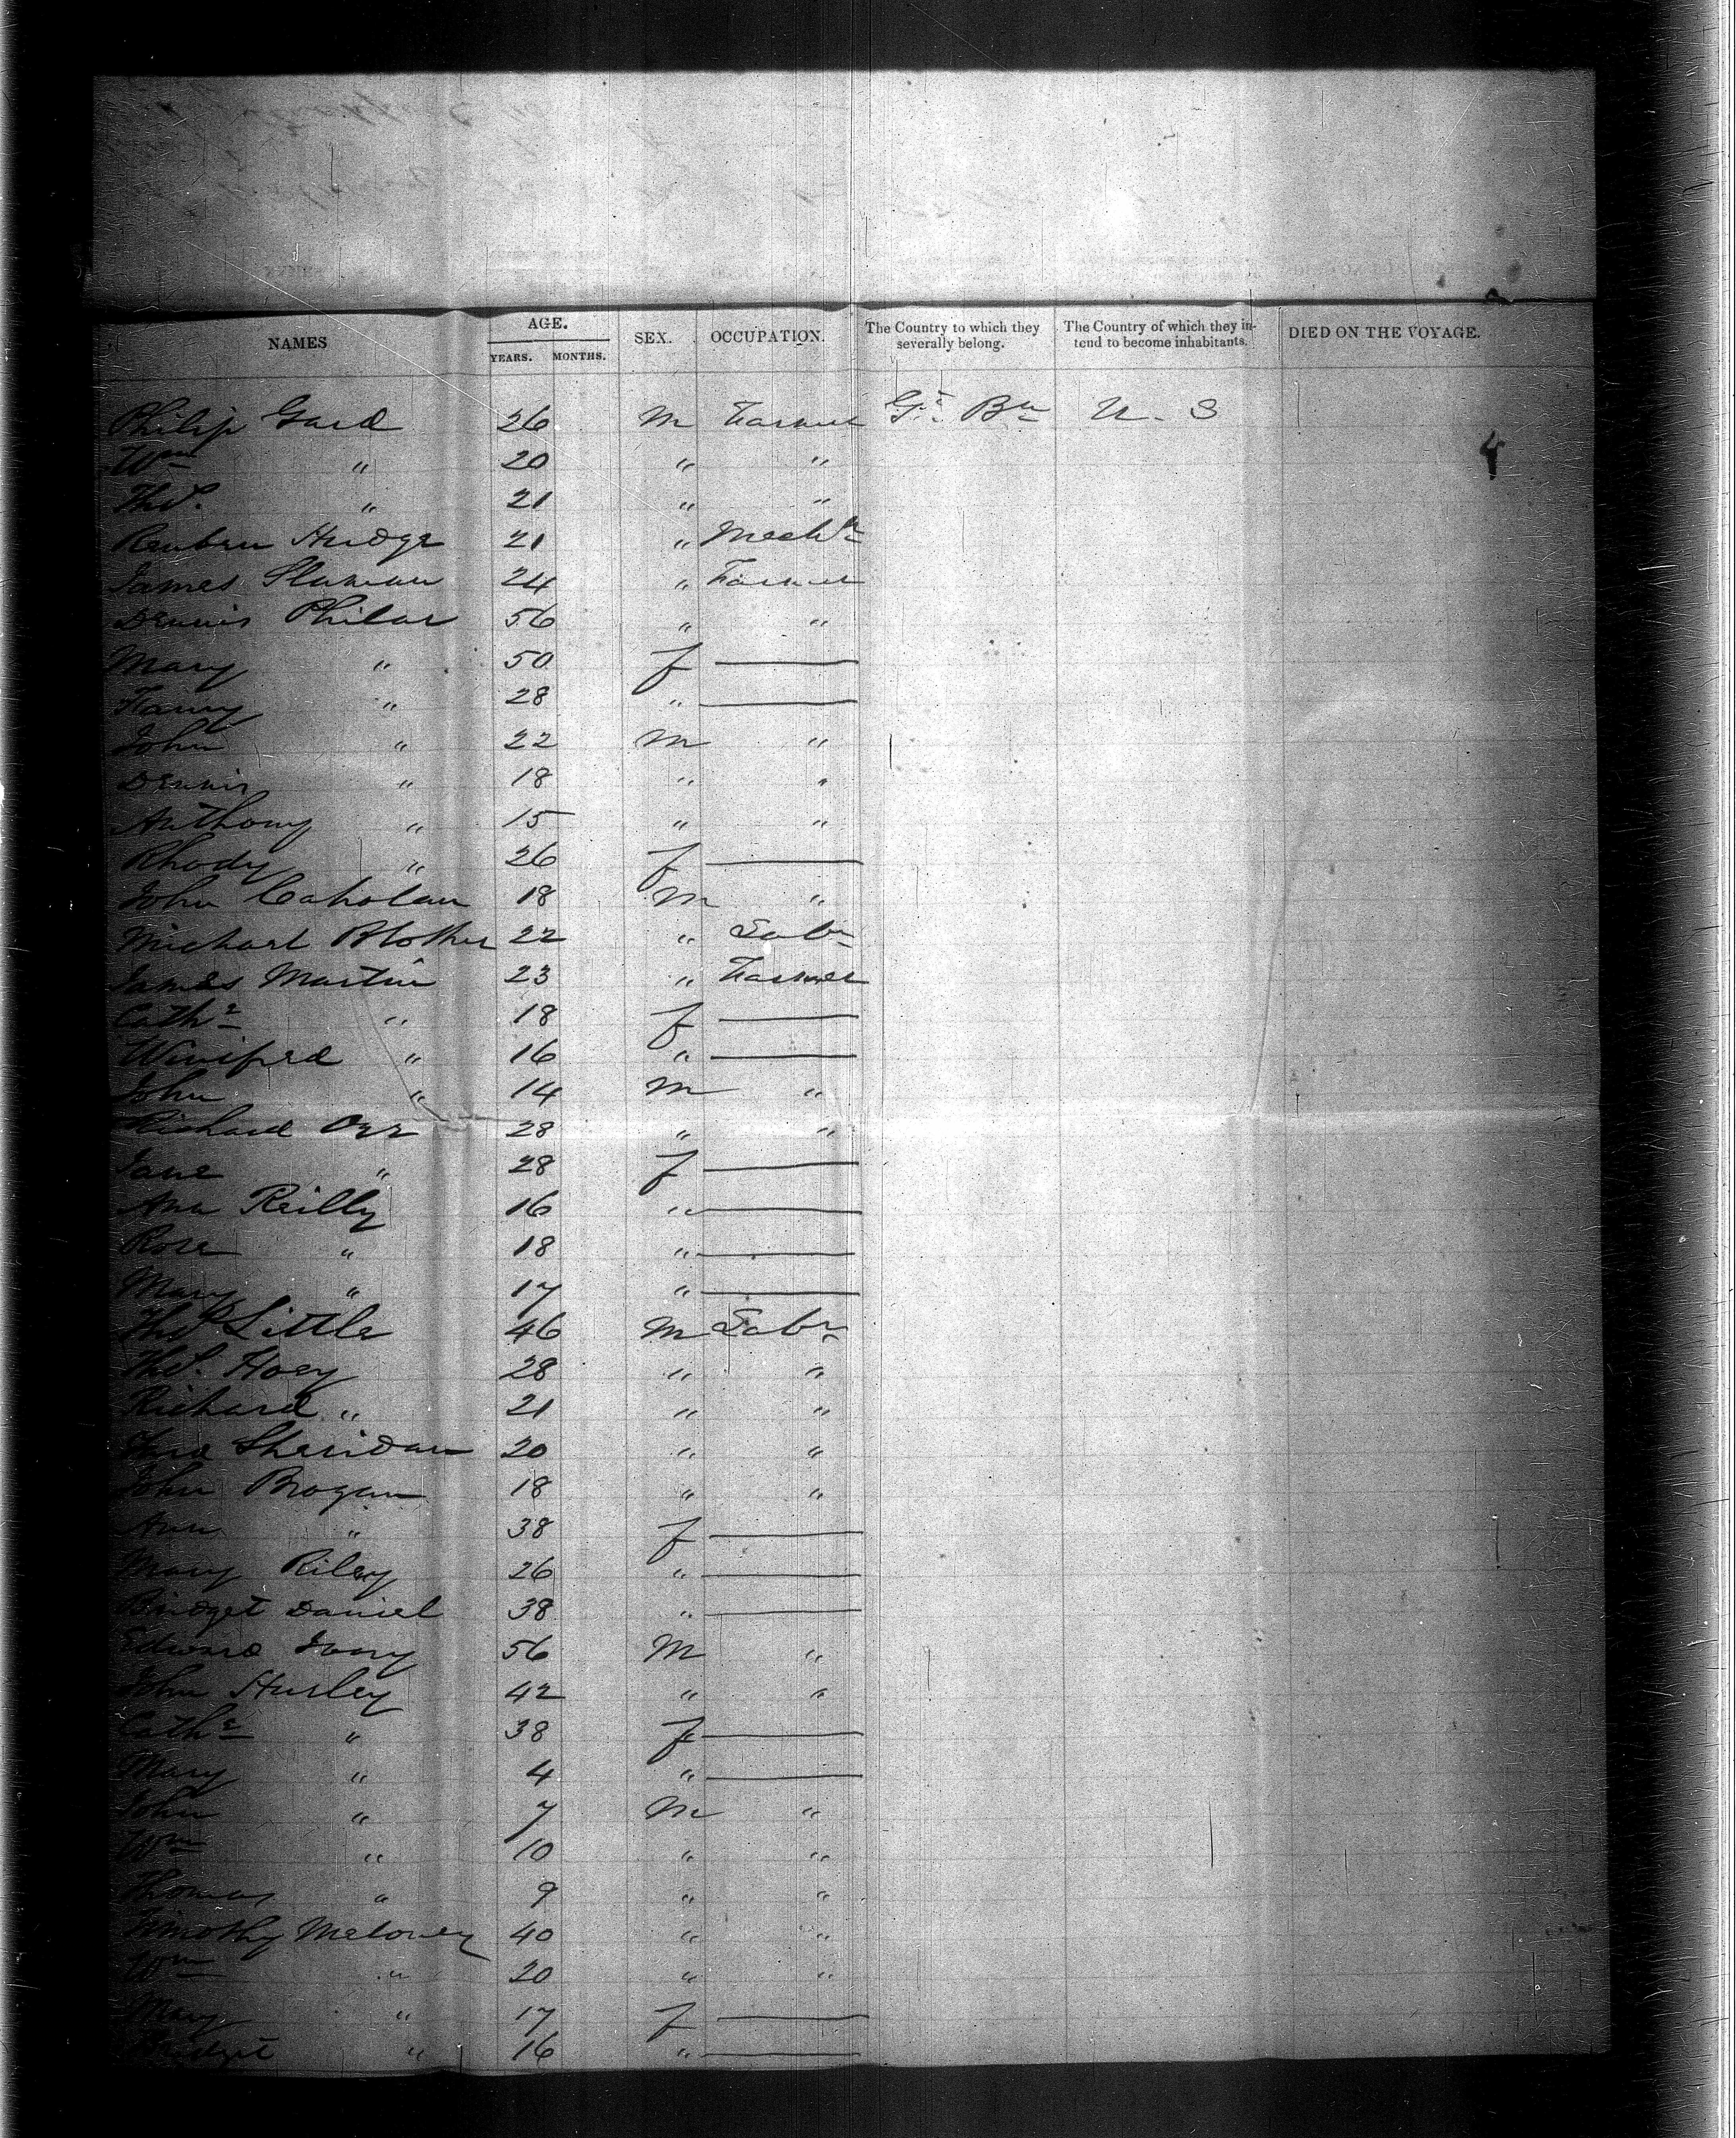 NAMES AGE. YEARS. MONTHS. SEX. OCCUPATION. The Country to which they severally belong. The Country of which they intend to become inhabitants. DIED ON THE VOYAGE.
Philip Gard 26 M Farmer Gt. Bn U. S
4
Wm " 20 " "
Thos. " 21 " "
Reuben Hudge 21 " Mechc
James Slaman 24 " Farmer
Dennis Philar 56 " "
Mary " 50 f —
Fanny " 28 " —
John " 22 M "
Dennis " 18 " "
Anthony " 15 " "
Rhody " 26 f —
John Caholan 18 M "
Michael 22 " Labr
James Martin 23 " Farmer
Cathe " 18 f —
Winifred " 16 " —
John " 14 M "
Richard Orr 28 " "
Jane " 28 f —
Ann Reilly 16 " —
Rose " 18 " —
Mary " 17 " —
Thos Little 46 M Labr
Thos. Hoey 28 " "
Richard " 21 " "
Sheridan 20 " "
John Brogan 18 " "
Ann " 38 f —
Mary Riley 26 " —
Bridget Daniel 38 " —
Edward Ivory 56 M "
John Hurley 42 " "
Cathe " 38 f —
Mary " 4 " —
John " 7 M "
Wm " 10 " "
Thomas " 9 " "
Timothy Meloney 40 " "
Wm " 20 " "
Mary " 17 f —
Bridget " 16 " —